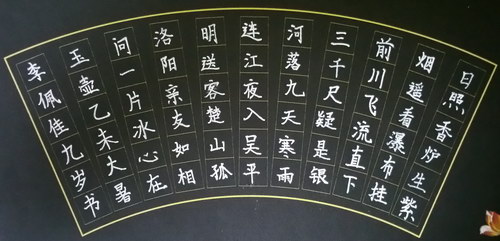 日照香炉生紫
烟遥看瀑布挂
前川飞流直下
三千尺疑是银
河落九天寒雨
连江夜入吴平
明送客楚山孤
洛阳亲友如相
问一片冰心在
玉壶乙未大暑
李佩佳九岁书